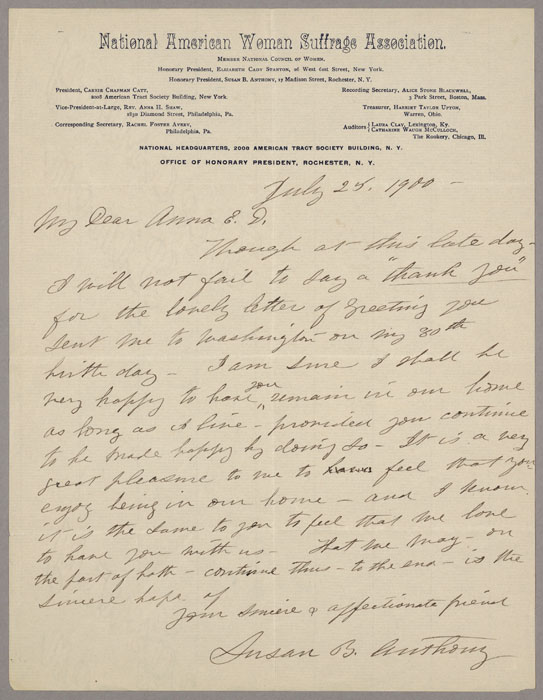 National American Woman Suffrage Association.
MEMBER NATIONAL COUNCIL OF WOMEN.
Honorary President, ELIZABETH CADY STANTON, 26 West 61st Street, New York.
Honorary President, SUSAN B. ANTHONY, 17 Madison Street, Rochester, N. Y.
President, CARRIE CHAPMAN CATT,
2008 American Tract Society Building, New York.
Vice-President-at-Large, REV. ANNA H. SHAW,
1830 Diamond Street, Philadelphia, Pa.
Corresponding Secretary, RACHEL FOSTER AVERY,
Philadelphia, Pa.
Recording Secretary, ALICE STONE BLACKWELL,
3 Park Street, Boston, Mass.
Treasurer, HARRIET TAYLOR UPTON,
Warren, Ohio.
Auditors { LAURA CLAY, Lexington, Ky.
CATHARINE WAUGH McCULLOCH,
The Rookery, Chicago, Ill.
NATIONAL HEADQUARTERS, 2008 AMERICAN TRACT SOCIETY BUILDING, N. Y.
OFFICE OF HONORARY PRESIDENT, ROCHESTER, N. Y.
July 1900 -
My Dear Anna E. D.
Though at this late day -
I will not fail to say a "thank you"
for the lovely letter of greeting you
sent me to Washington on my 80th
birth day - I am sure I shall be
very happy to have you remain in our home
as long as I live - provided you continue
to be made happy by doing so - It is a very
great pleasure to me to feel that you
enjoy being in our home - and I know
it is the same to you to feel that we love
to have you with us - That we may - on
the part of both - continue thus - to the end - is the
sincere hope of
Your sincere & affectionate friend
Susan B. Anthony